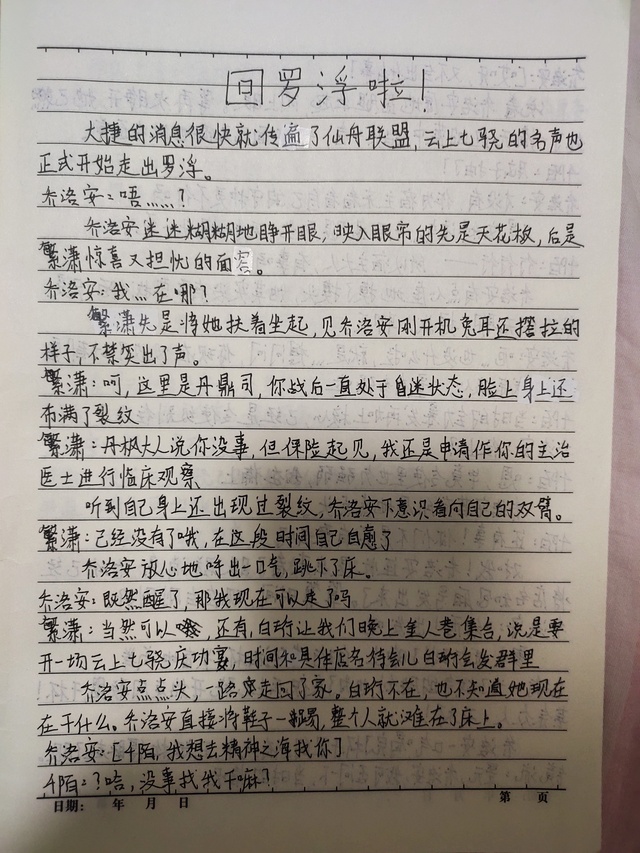 回罗浮啦！
大捷的消息很快就传遍了仙舟联盟，云上七骁的名声也
正式开始走出罗浮。
乔洛安：唔……？
乔洛安迷迷糊糊地睁开眼，映入眼帘的先是天花板，后是
繁潇惊喜又担忧的面容。
乔洛安：我…在哪？
繁潇先是将她扶着坐起，见乔洛安刚开机兔耳还搭拉的
样子，不禁笑出了声。
繁潇：呵，这里是丹鼎司，你战后一直处于昏迷状态，脸上身上还
布满了裂纹
繁潇：丹枫大人说你没事，但保险起见，我还是申请作你的主治
医士进行临床观察
听到自己身上还出现过裂纹，乔洛安下意识看向自己的双臂。
繁潇：已经没有了哦，在这段时间自己自愈了
乔洛安放心地呼出一口气，跳下了床。
乔洛安：既然醒了，那我现在可以走了吗
繁潇：当然可以，还有，白珩让我们晚上金人巷集合，说是要
开一场云上七骁庆功宴，时间和具体店名待会儿白珩会发群里
乔洛安点点头，一路穿走回了家。白珩不在，也不知道她现在
在干什么。乔洛安直接将鞋子一踢，整个人就滩在了床上。
乔洛安：[千陌，我想去精神之海找你]
千陌：？哈，没事找我干嘛？
日期： 年 月 日 第 页